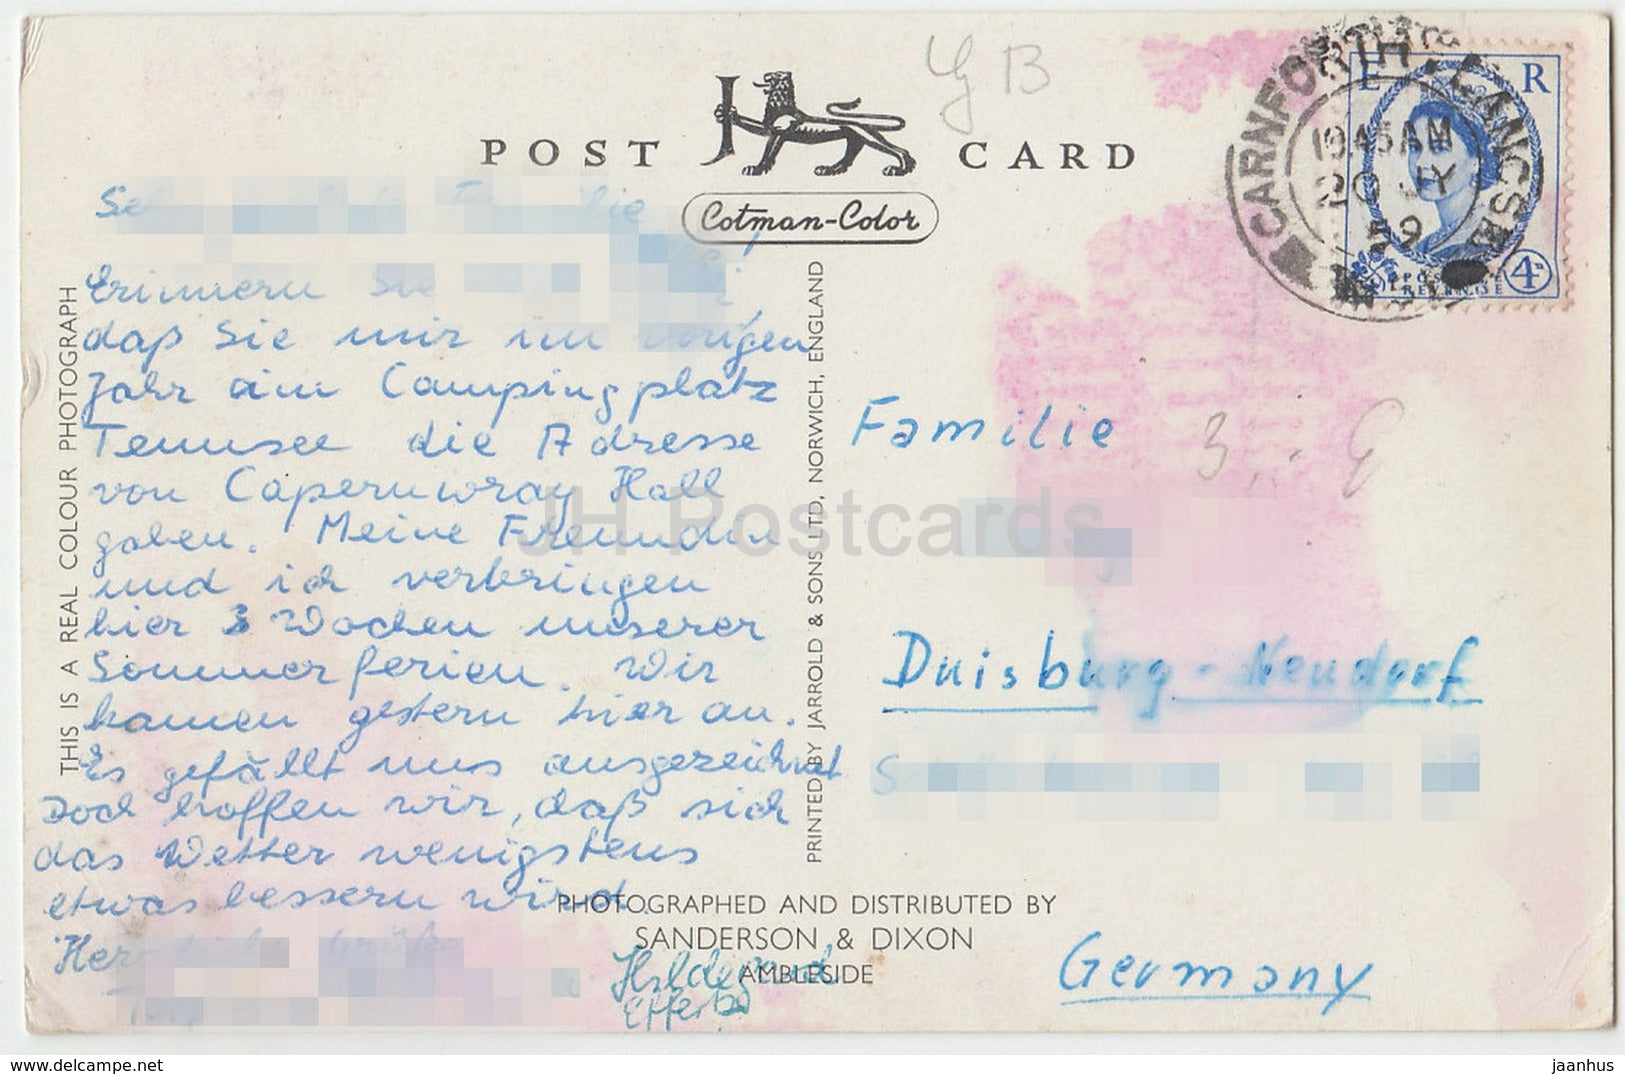 POST CARD
Cotman-Color
G B
CARNFORTH · LANCS
1045 AM
20 JY
59
E R
POSTAGE
REVENUE
4D
THIS IS A REAL COLOUR PHOTOGRAPH
Familie
Erinnern Sie
daß Sie mir im vorigen
Jahr am Campingplatz
Tennsee die Adresse
von Capernwray Hall
gaben. Meine Freundin
und ich verbringen
hier 3 Wochen unserer
Sommerferien. Wir
kamen gestern hier an.
Es gefällt uns ausgezeichnet
Doch hoffen wir, daß sich
das Wetter wenigstens
etwas bessern wird.
Herzliche Grüße
Hildegard
PRINTED BY JARROLD & SONS LTD, NORWICH, ENGLAND
Familie
Duisburg-Neudorf
Germany
PHOTOGRAPHED AND DISTRIBUTED BY
SANDERSON & DIXON
AMBLESIDE
JH Postcards
jaanhus.delcampe.net
jaanhus